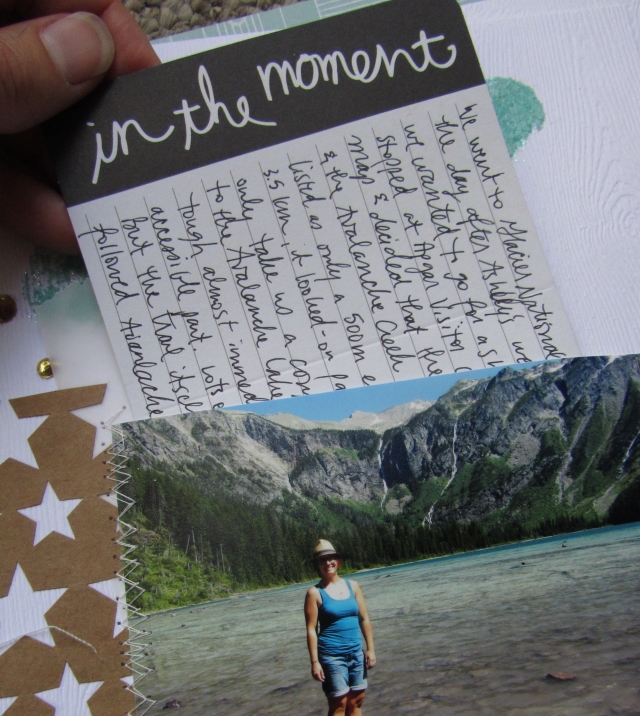 in the moment
We went to Glacier Nationa
the day after Ashley's we
we wanted to go for a sh
stopped at Apgar Visitor C
map & decided that the
& the Avalanche Creek
listed as only a 500m e
3.5 km, it looked on pa
only take us a co
to the Avalanche Lake
tough almost immed
accessible part. Lots
but the trail itse
followed Avalanche